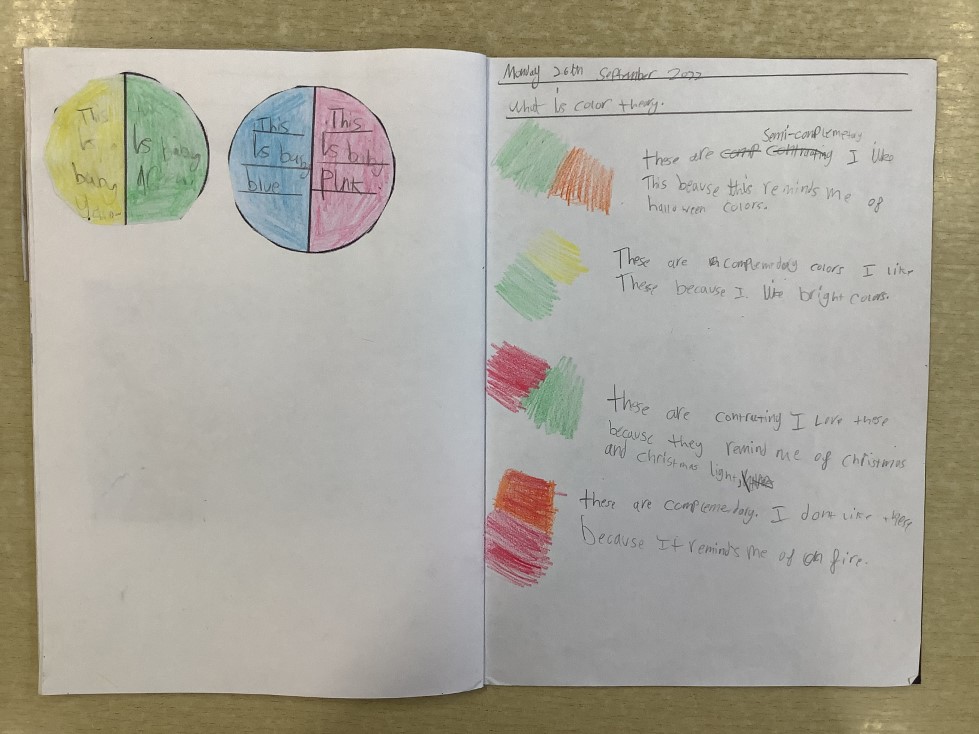 This
Is
baby
Is baby
This
Is baby
blue
This
Is baby
PInk.
Monday 26th September 2022
what is color theory.
Semi-complemetry
these are I like
This beause this reminds me of
halloween colors.
These are complemenday colors I like
These because I like bright colors.
these are contrasting I Love these
because they remind me of christmas
and christmas lights
these are complemenday. I dont like these
because It reminds me of fire.